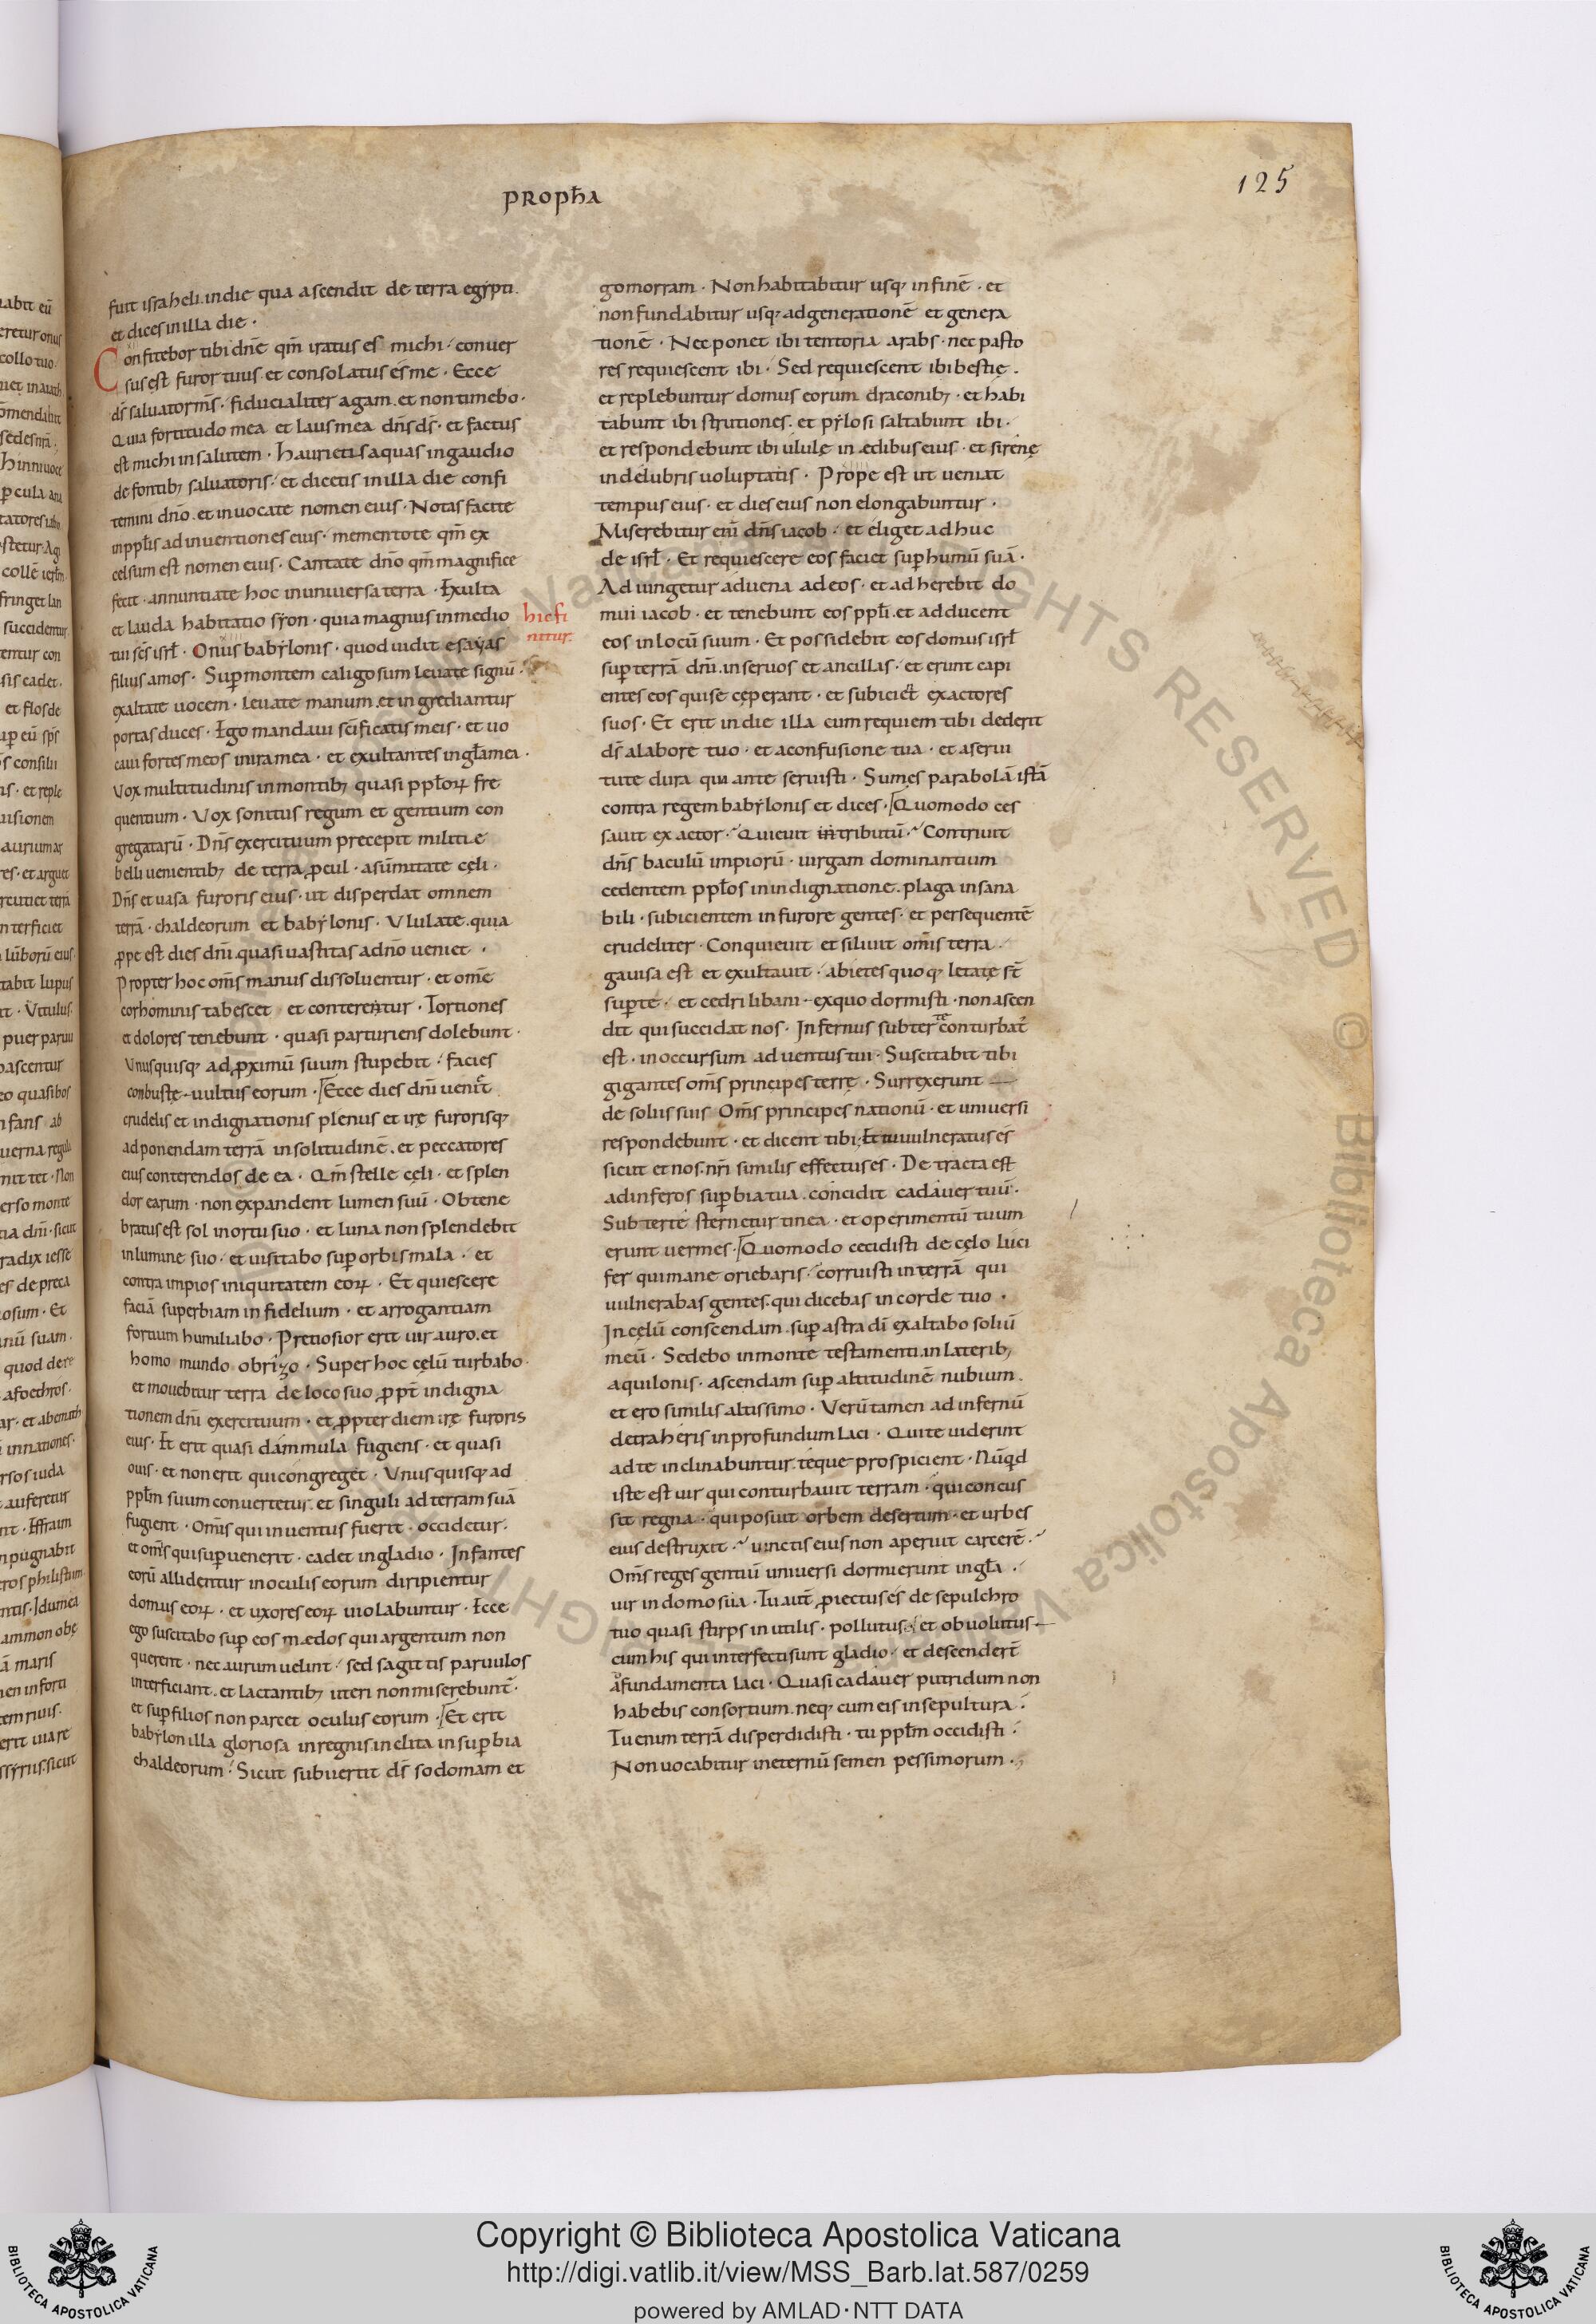 PROPħA
125
fuit israheli. in die qua ascendit de terra egẏpti.
et dices in illa die ·
Confitebor tibi dn̄e qm̄ iratus es michi · conuer
sus est furor tuus · et consolatus es me · Ecce
ds̄ saluator ms̄ · fiducialiter agam . et non timebo ·
Quia fortitudo mea et laus mea dn̄s ds̄ · et factus
est michi in salutem · haurietis aquas in gaudio
de fontib; saluatoris · et dicetis in illa die confi
temini dn̄o . et inuocate nomen eius · Notas facite
in ppl̄is adinuentiones eius · mementote qm̄ ex
celsum est nomen eius · Cantate dn̄o qm̄ magnifice
fecit · annuntiate hoc in uniuersa terra · Exulta
et lauda habitatio sẏon · quia magnus in medio
hic fi
nitur
tui sc̄s isrl̄ · Onus babẏlonis · quod uidit esaẏas
filius amos · Sup̄ montem caligosum leuate signū ·
exaltate uocem · leuate manum . et ingrediantur
portas duces · Ego mandaui sc̄ificatis meis · et uo
caui fortes meos in ira mea · et exultantes in gl̄a mea ·
Vox multitudinis in montib; quasi ppl̄oꝝ fre
quentium · Vox sonitus regum et gentium con
gregatarū · Dn̄s exercituum precepit militię
belli uenientib; de terra ꝓcul · a sūmitate cęli ·
Dn̄s et uasa furoris eius · ut disperdat omnem
terrā · chaldeorum et babẏlonis · Vlulate . quia
ꝓpe est dies dn̄i . quasi uastitas a dn̄o ueniet ·
Propter hoc om̄s manus dissoluentur · et om̄e
cor hominis tabescet et conterentur · Tortiones
et dolores tenebunt · quasi parturiens dolebunt ·
Vnusquisq; ad ꝓximū suum stupebit · facies
conbustę · uultus eorum · Ecce dies dn̄i uenit
crudelis et indignationis plenus et irę furorisq;
ad ponendam terrā in solitudinē . et peccatores
eius conterendos de ea · Qm̄ stelle cęli · et splen
dor earum · non expandent lumen suū · Obtene
bratus est sol in ortu suo · et luna non splendebit
in lumine suo · et uisitabo sup̄ orbis mala · et
contra impios iniquitatem eoꝝ · Et quiescere
faciā superbiam infidelium · et arrogantiam
fortium humiliabo · Pretiosior erit uir auro . et
homo mundo obrizo · Super hoc cęlū turbabo ·
et mouebitur terra de loco suo ꝓpt̄ indigna
tionem dn̄i exercituum · et ꝓpter diem irę furoris
eius · Et erit quasi dammula fugiens · et quasi
ouis · et non erit qui congreget · Vnusquisq; ad
ppl̄m suum conuertetur . et singuli ad terram suā
fugient · Om̄is qui inuentus fuerit · occidetur ·
et om̄is qui sup̄uenerit · cadet in gladio · Infantes
eorū allidentur in oculis eorum diripientur
domus eoꝝ · et uxores eoꝝ uiolabuntur · Ecce
ego suscitabo sup̄ eos mædos qui argentum non
querent · nec aurum uelint · sed sagittis paruulos
interficiant . et lactantib; uteri non miserebunt̄ ·
et sup̄ filios non parcet oculus eorum · Et erit
babẏlon illa gloriosa in regnis inclita in sup̄bia
chaldeorum · Sicut subuertit ds̄ sodomam et
gomorram · Non habitabitur usq; in finē · et
non fundabitur usq; ad generationē et genera
tionē · Nec ponet ibi tentoria arabs · nec pasto
res requiescent ibi · Sed requiescent ibi bestię .
et replebuntur domus eorum draconib; · et habi
tabunt ibi strutiones · et pẏlosi saltabunt ibi ·
et respondebunt ibi ululę in ædibus eius · et sirenę
in delubris uoluptatis · Prope est ut ueniat
tempus eius · et dies eius non elongabuntur ·
Miserebitur eni̅ dn̄s iacob · et eliget adhuc
de isrl̄ · Et requiescere eos faciet sup̄ humū suā ·
Adiungetur aduena ad eos · et adherebit do
mui iacob · et tenebunt eos ppl̄i . et adducent
eos in locū suum · Et possidebit eos domus isrl̄
sup̄ terrā dn̄i . in seruos et ancillas · et erunt capi
entes eos qui se cęperant · et subiciēt exactores
suos · Et erit in die illa cum requiem tibi dederit
ds̄ a labore tuo · et a confusione tua · et a serui
tute dura qua ante seruisti · Sumes parabolā istā
contra regem babẏlonis et dices · Quomodo ces
sauit exactor · Quieuit in tributū · Contriuit
dn̄s baculū impiorū · uirgam dominantium
cedentem ppl̄os in indignatione · plaga insana
bili · subicientem in furore gentes · et persequentē
crudeliter · Conquieuit et siluit om̄is terra ·
gauisa est et exultauit · abietes quoq; letatę st̄
sup̄ te · et cedri libani · ex quo dormisti · non ascen
dit qui succidat nos · Infernus subter te conturbat'
est · in occursum aduentus tui · Suscitabit tibi
gigantes om̄s principes terrę · Surrexerunt
de soliis suis Om̄s principes nationū · et uniuersi
respondebunt · et dicent tibi · Et tu uulneratus es
sicut et nos . nr̄i similis effectus es · Detracta est
ad inferos sup̄bia tua . concidit cadauer tuū ·
Sub terte sternetur tinea · et operimentū tuum
erunt uermes · Quomodo cecidisti de cęlo luci
fer qui mane oriebaris · corruisti in terrā qui
uulnerabas gentes . qui dicebas in corde tuo ·
In cęlū conscendam . sup̄ astra dī exaltabo soliū
meū · Sedebo in monte testamenti . in laterib;
aquilonis · ascendam sup̄ altitudinē nubium .
et ero similis altissimo · Verūtamen ad infernū
detraheris in profundum laci · Qui te uiderint
ad te inclinabuntur . teque prospicient · Nūqd
iste est uir qui conturbauit terram · qui concus
sit regna · qui posuit orbem desertum · et urbes
eius destruxit · uinctis eius non aperuit carcerē ·
Om̄s reges gentiū uniuersi dormierunt in gl̄a ·
uir in domo sua · Tu aut̄ ꝓiectus es de sepulchro
tuo quasi stirps inutilis · pollutus · et obuolutus
cum his qui interfecti sunt gladio · et descendert̄
a fundamenta laci · Quasi cadauer putridum non
habebis consortium . neq; cum eis in sepultura ·
Tu enim terrā disperdidisti · tu ppl̄m occidisti ·
Non uocabitur in eternū semen pessimorum ·
Copyright © Biblioteca Apostolica Vaticana
http://digi.vatlib.it/view/MSS_Barb.lat.587/0259
powered by AMLAD·NTT DATA